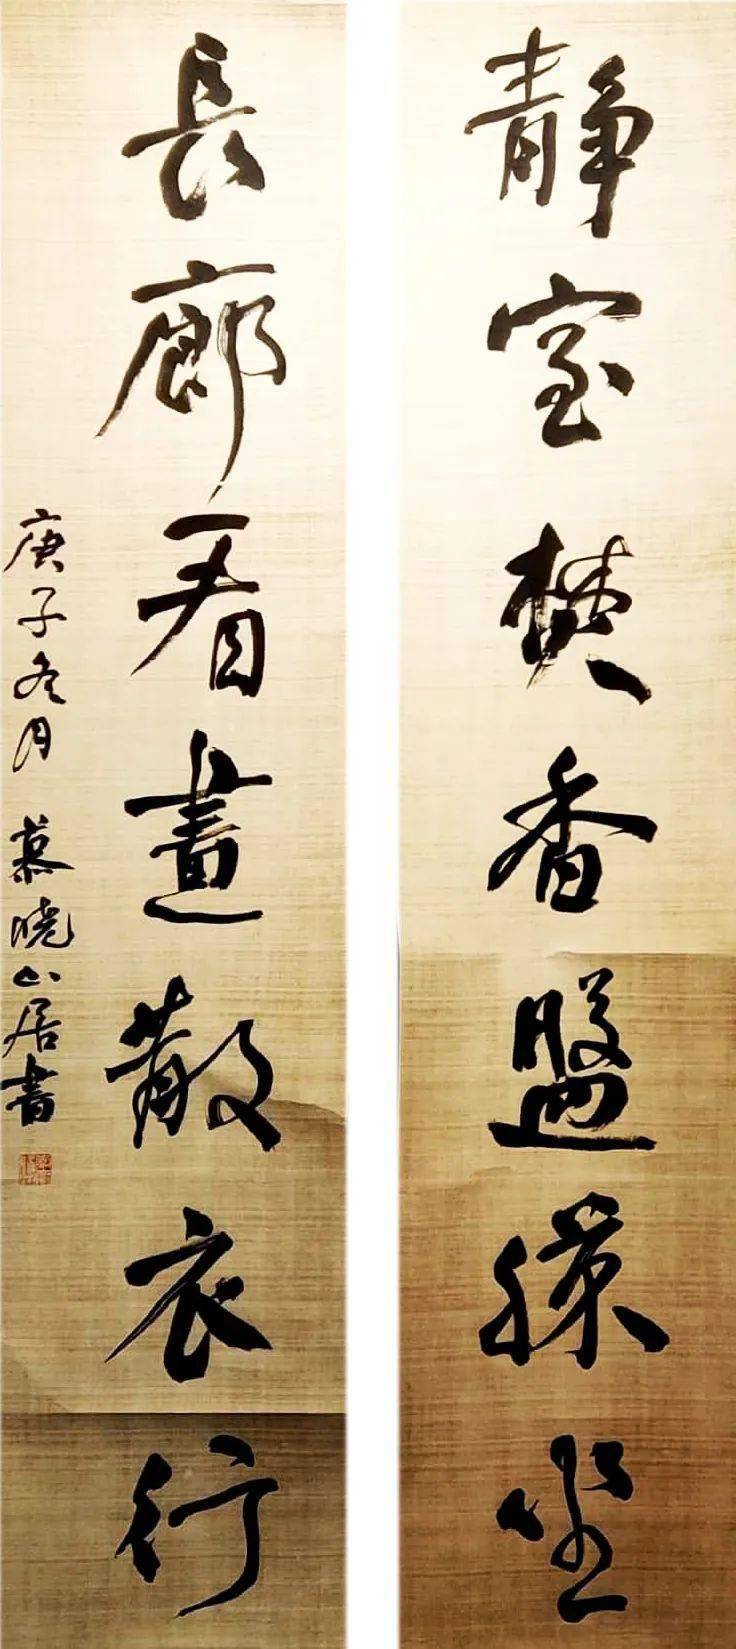 靜室焚香盤膝坐
長廊看畫散衣行
庚子冬月 慕曉山居書